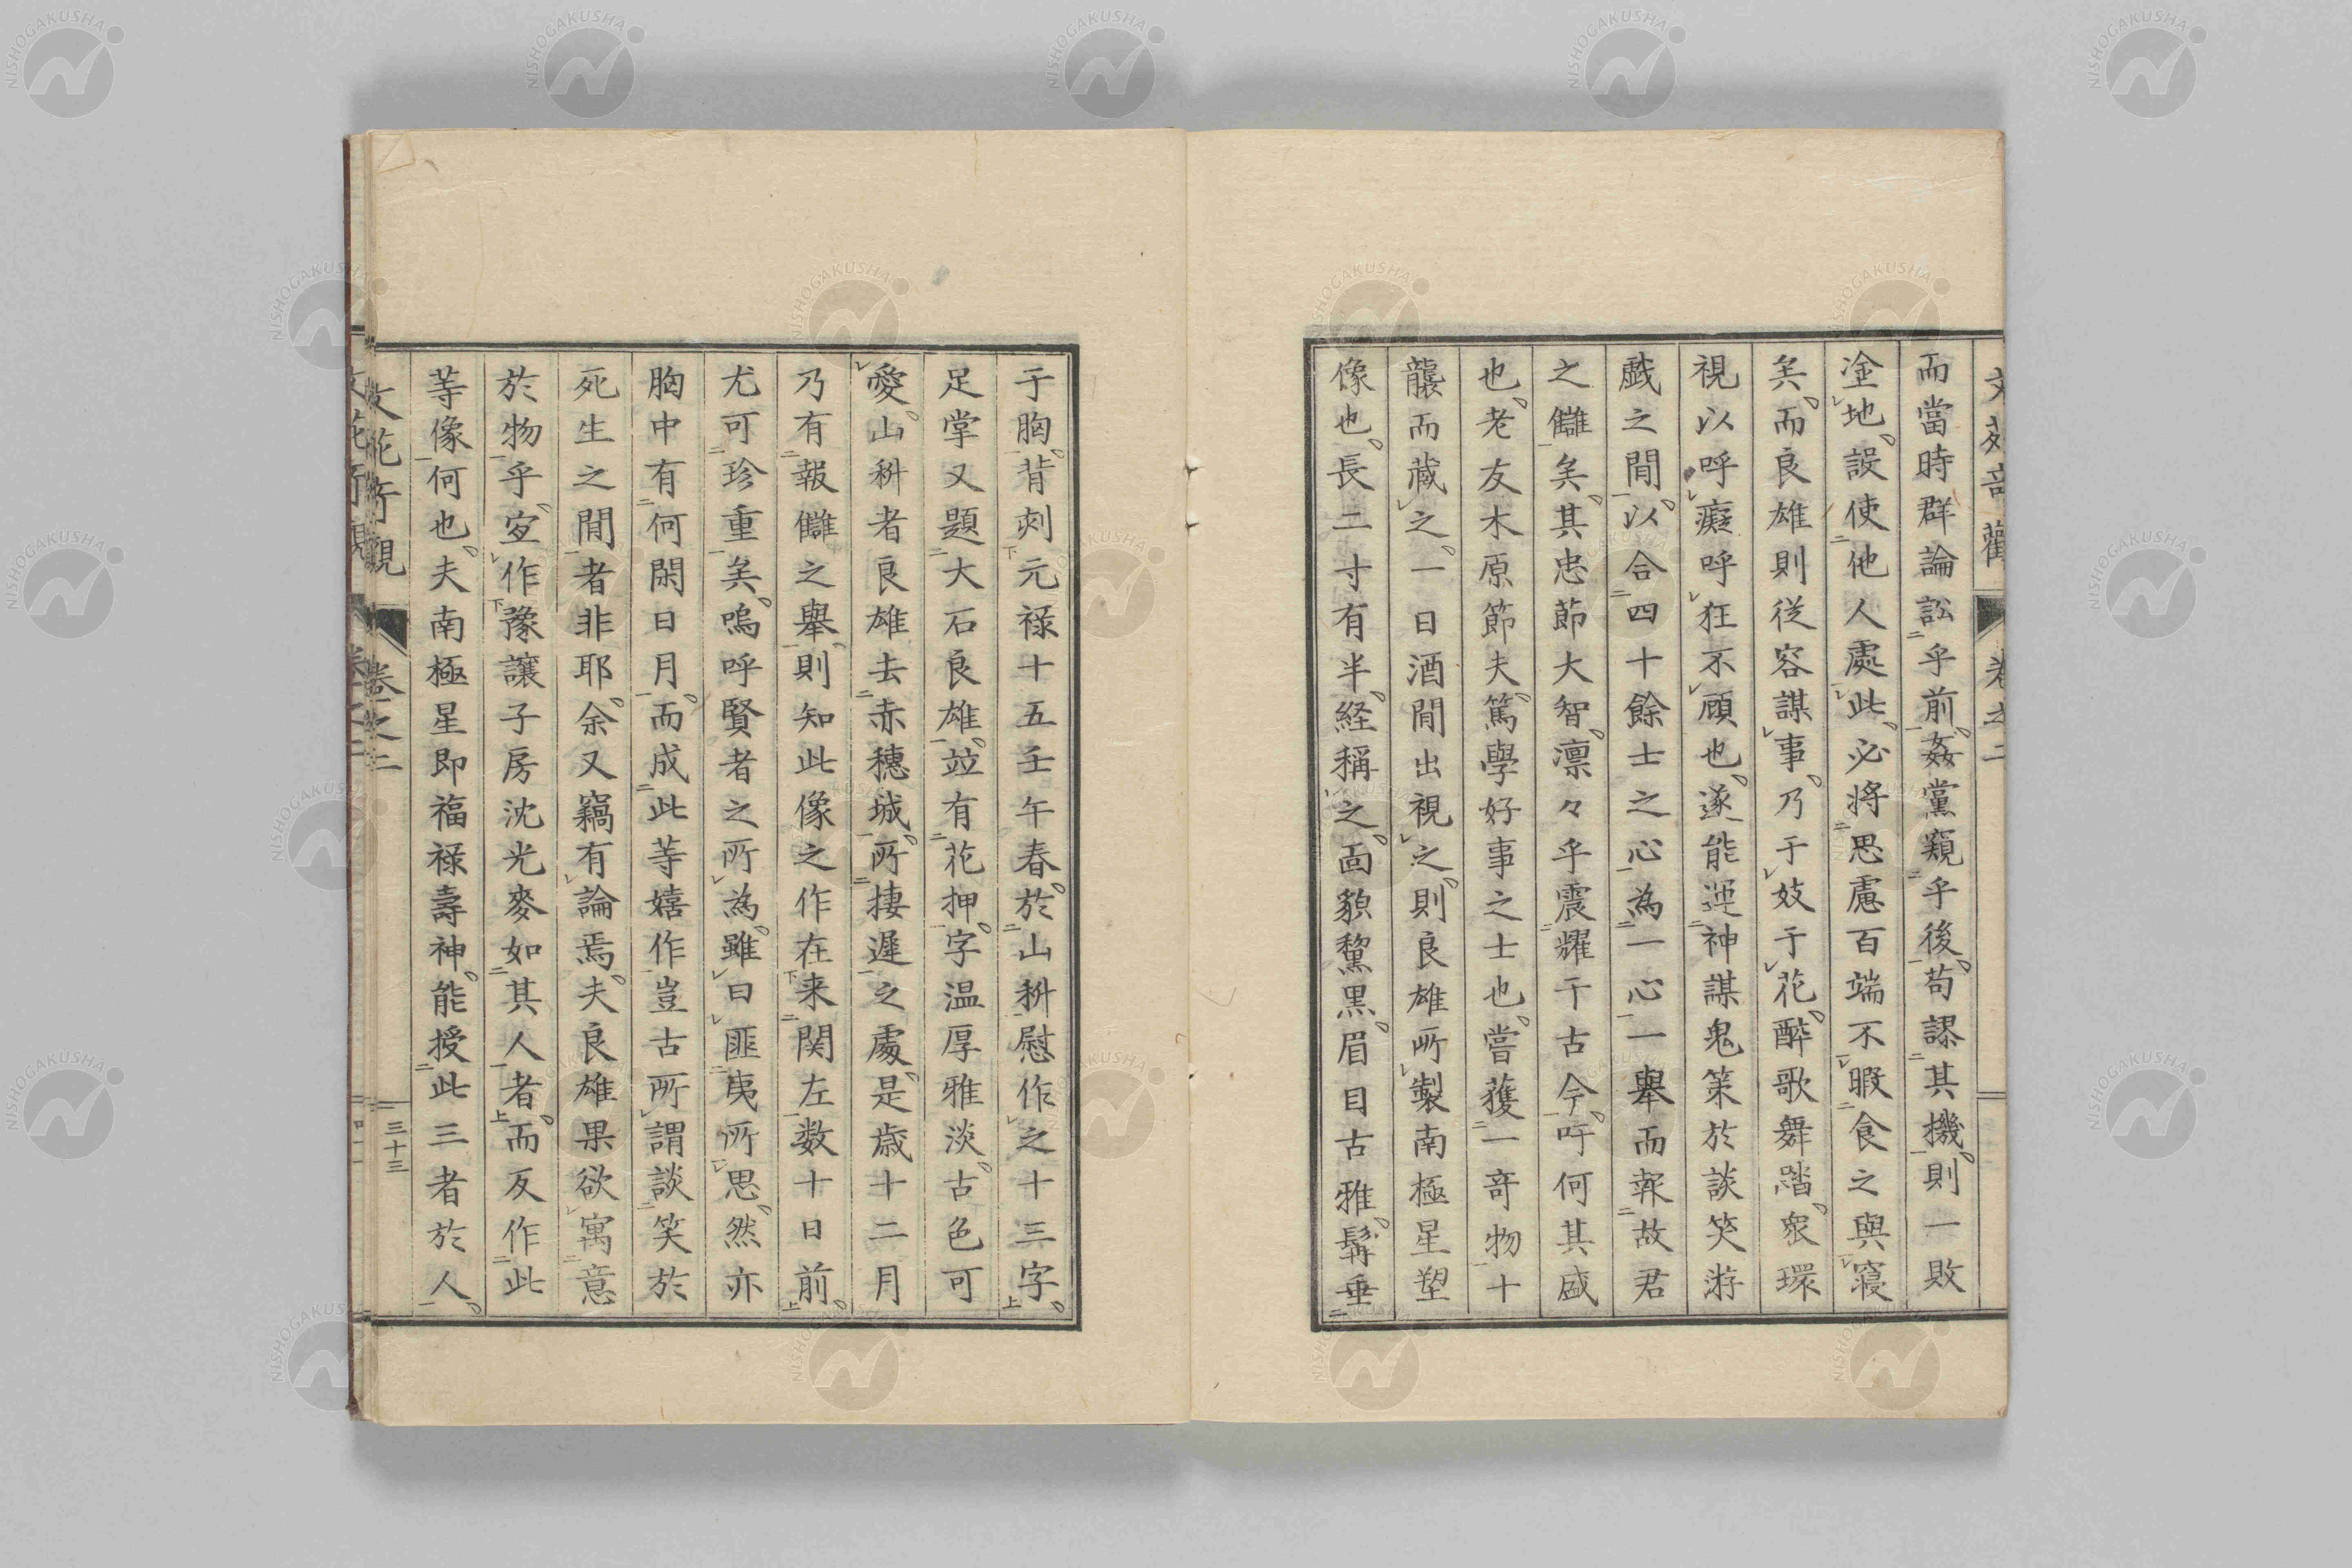 文花奇觀 卷之二
而當時群論訟乎前、姦黨窺乎後、苟謬其機、則一敗
塗地、設使他人處此、必將思慮百端不暇食之與寢
矣、而良雄則従容謀事、乃于妓于花、醉歌舞踏、衆環
視以呼癡呼狂不顧也、遂能運神謀鬼策於談笑游
戯之間、以合四十餘士之心為一心一舉而報故君
之讎矣、其忠莭大智、凛々乎震耀千古今、吁何其盛
也、老友木原節夫、篤學好事之士也、嘗獲一奇物十
襲而蔵之、一日酒間出視之、則良雄所製南極星塑
像也、長二寸有半経稱之、面貌黧黒、眉目古雅、髯垂
于胸、背刻元禄十五壬午春、於山科慰作之十三字、
足掌又題大石良雄、竝有花押、字温厚雅淡、古色可
愛、山科者良雄去赤穗城、所捿遲之處、是歳十二月
乃有報讎之舉、則知此像之作在来関左数十日前、
尤可珍重矣、嗚呼賢者之所為、雖曰匪夷所思、然亦
胸中有何閑日月、而成此等嬉作豈古所謂談笑於
死生之間者非耶、余又竊有論焉、夫良雄果欲寓意
於物乎、宜作豫讓子房沈光麥如其人者、而反作此
等像何也、夫南極星即福禄壽神、能授此三者於人、
文花奇観 卷之二 三十三